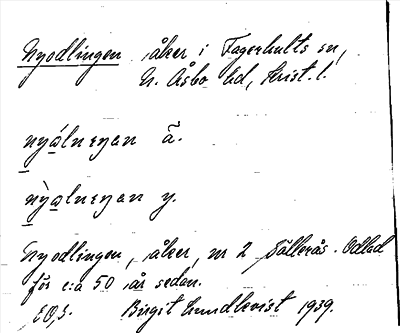 Nyodlingen åker i Fagerhults sn,
N. Åsbo hd, Krist. l.
ny̍ɷlnεɲan ä.
ny̍ɷlnεɲan y.
Nyodlingen, åker, nr 2 Källerås. Odlad
för c:a 50 år sedan.
Birgit Lundkvist 1939.